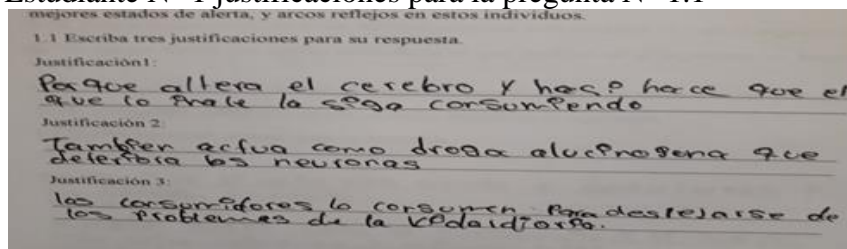 Estudiante N° 1 justificaciones para la pregunta N° 1.1
mejores estados de alerta, y arcos reflejos en estos individuos.
1.1 Escriba tres justificaciones para su respuesta.
Justificación1:
Porque altera el cerebro y hace hace que el
que lo inale la siga consumiendo
Justificación 2:
Tambien actua como droga alucinogena que
deteribra las neuronas
Justificación 3:
los consumidores lo consumen para despejarse de
los problemas de la vida diaria.